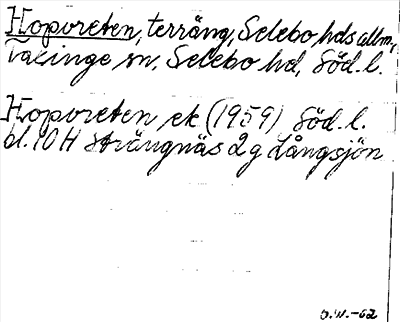 Hopvreten, terräng, Selebo hds allm.,
Taxinge sn, Selebo hd, Söd. l.
Hopvreten ek (1959) Söd. l.
bl. 10 H Strängnäs 2 g Långsjön
D.W.-62